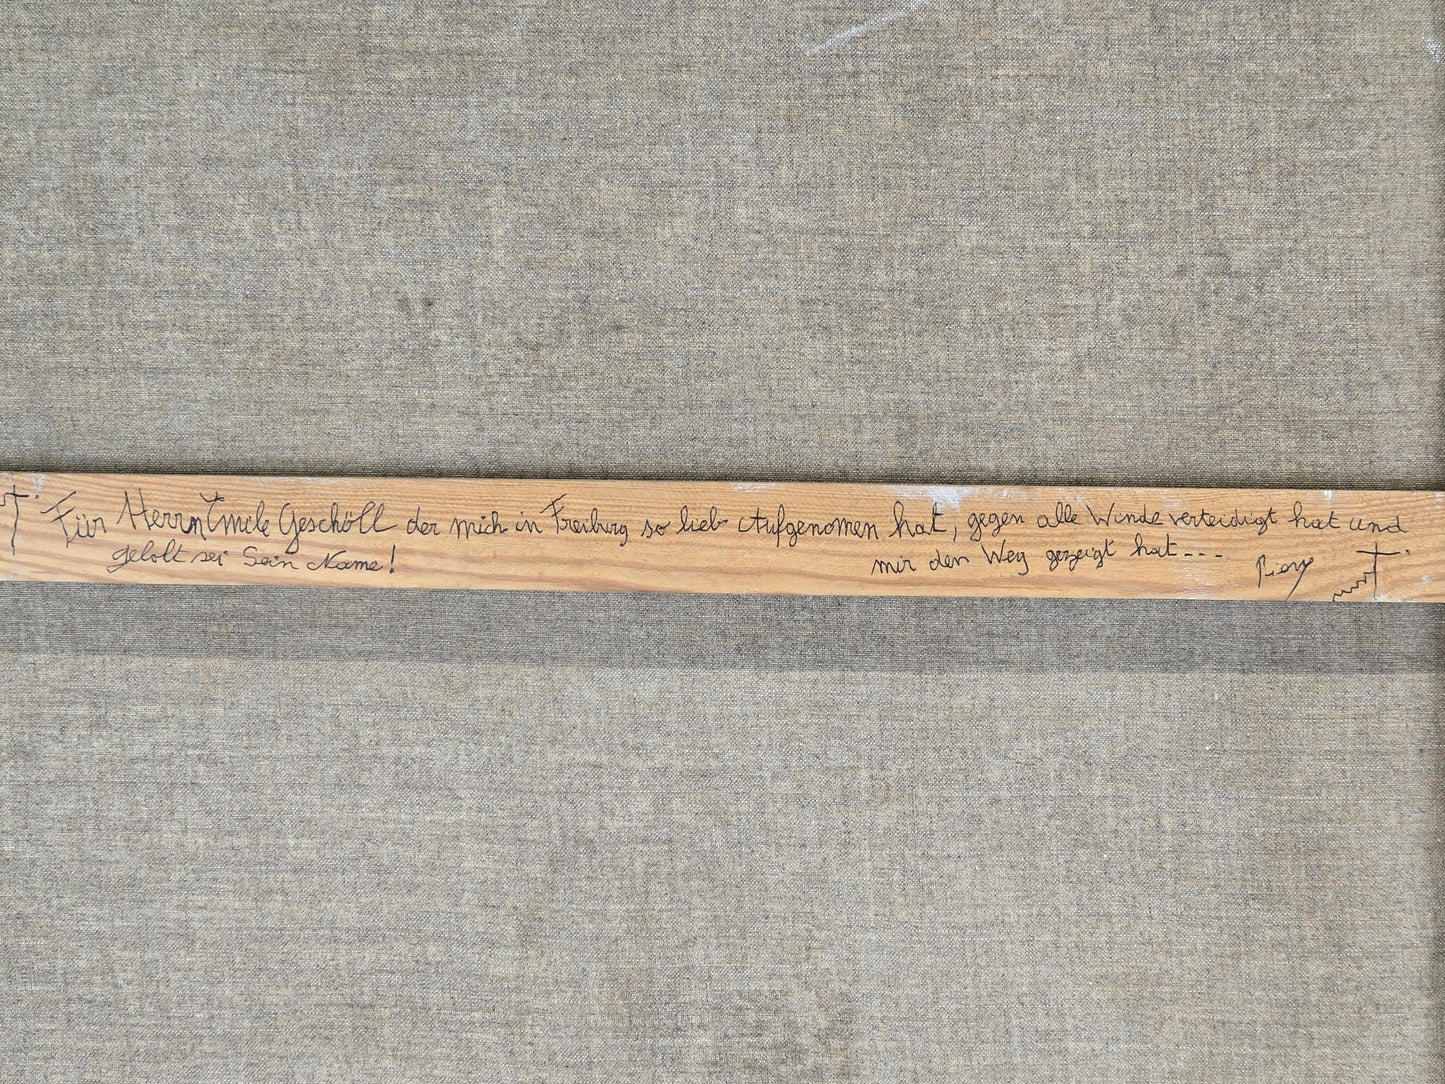 Für Herrn Emile Geschöll der mich in Freiburg so lieb Aufgenomen hat, gegen alle Winde verteidigt hat und
gelolt sei Sein Name! mir den Weg gezeigt hat---